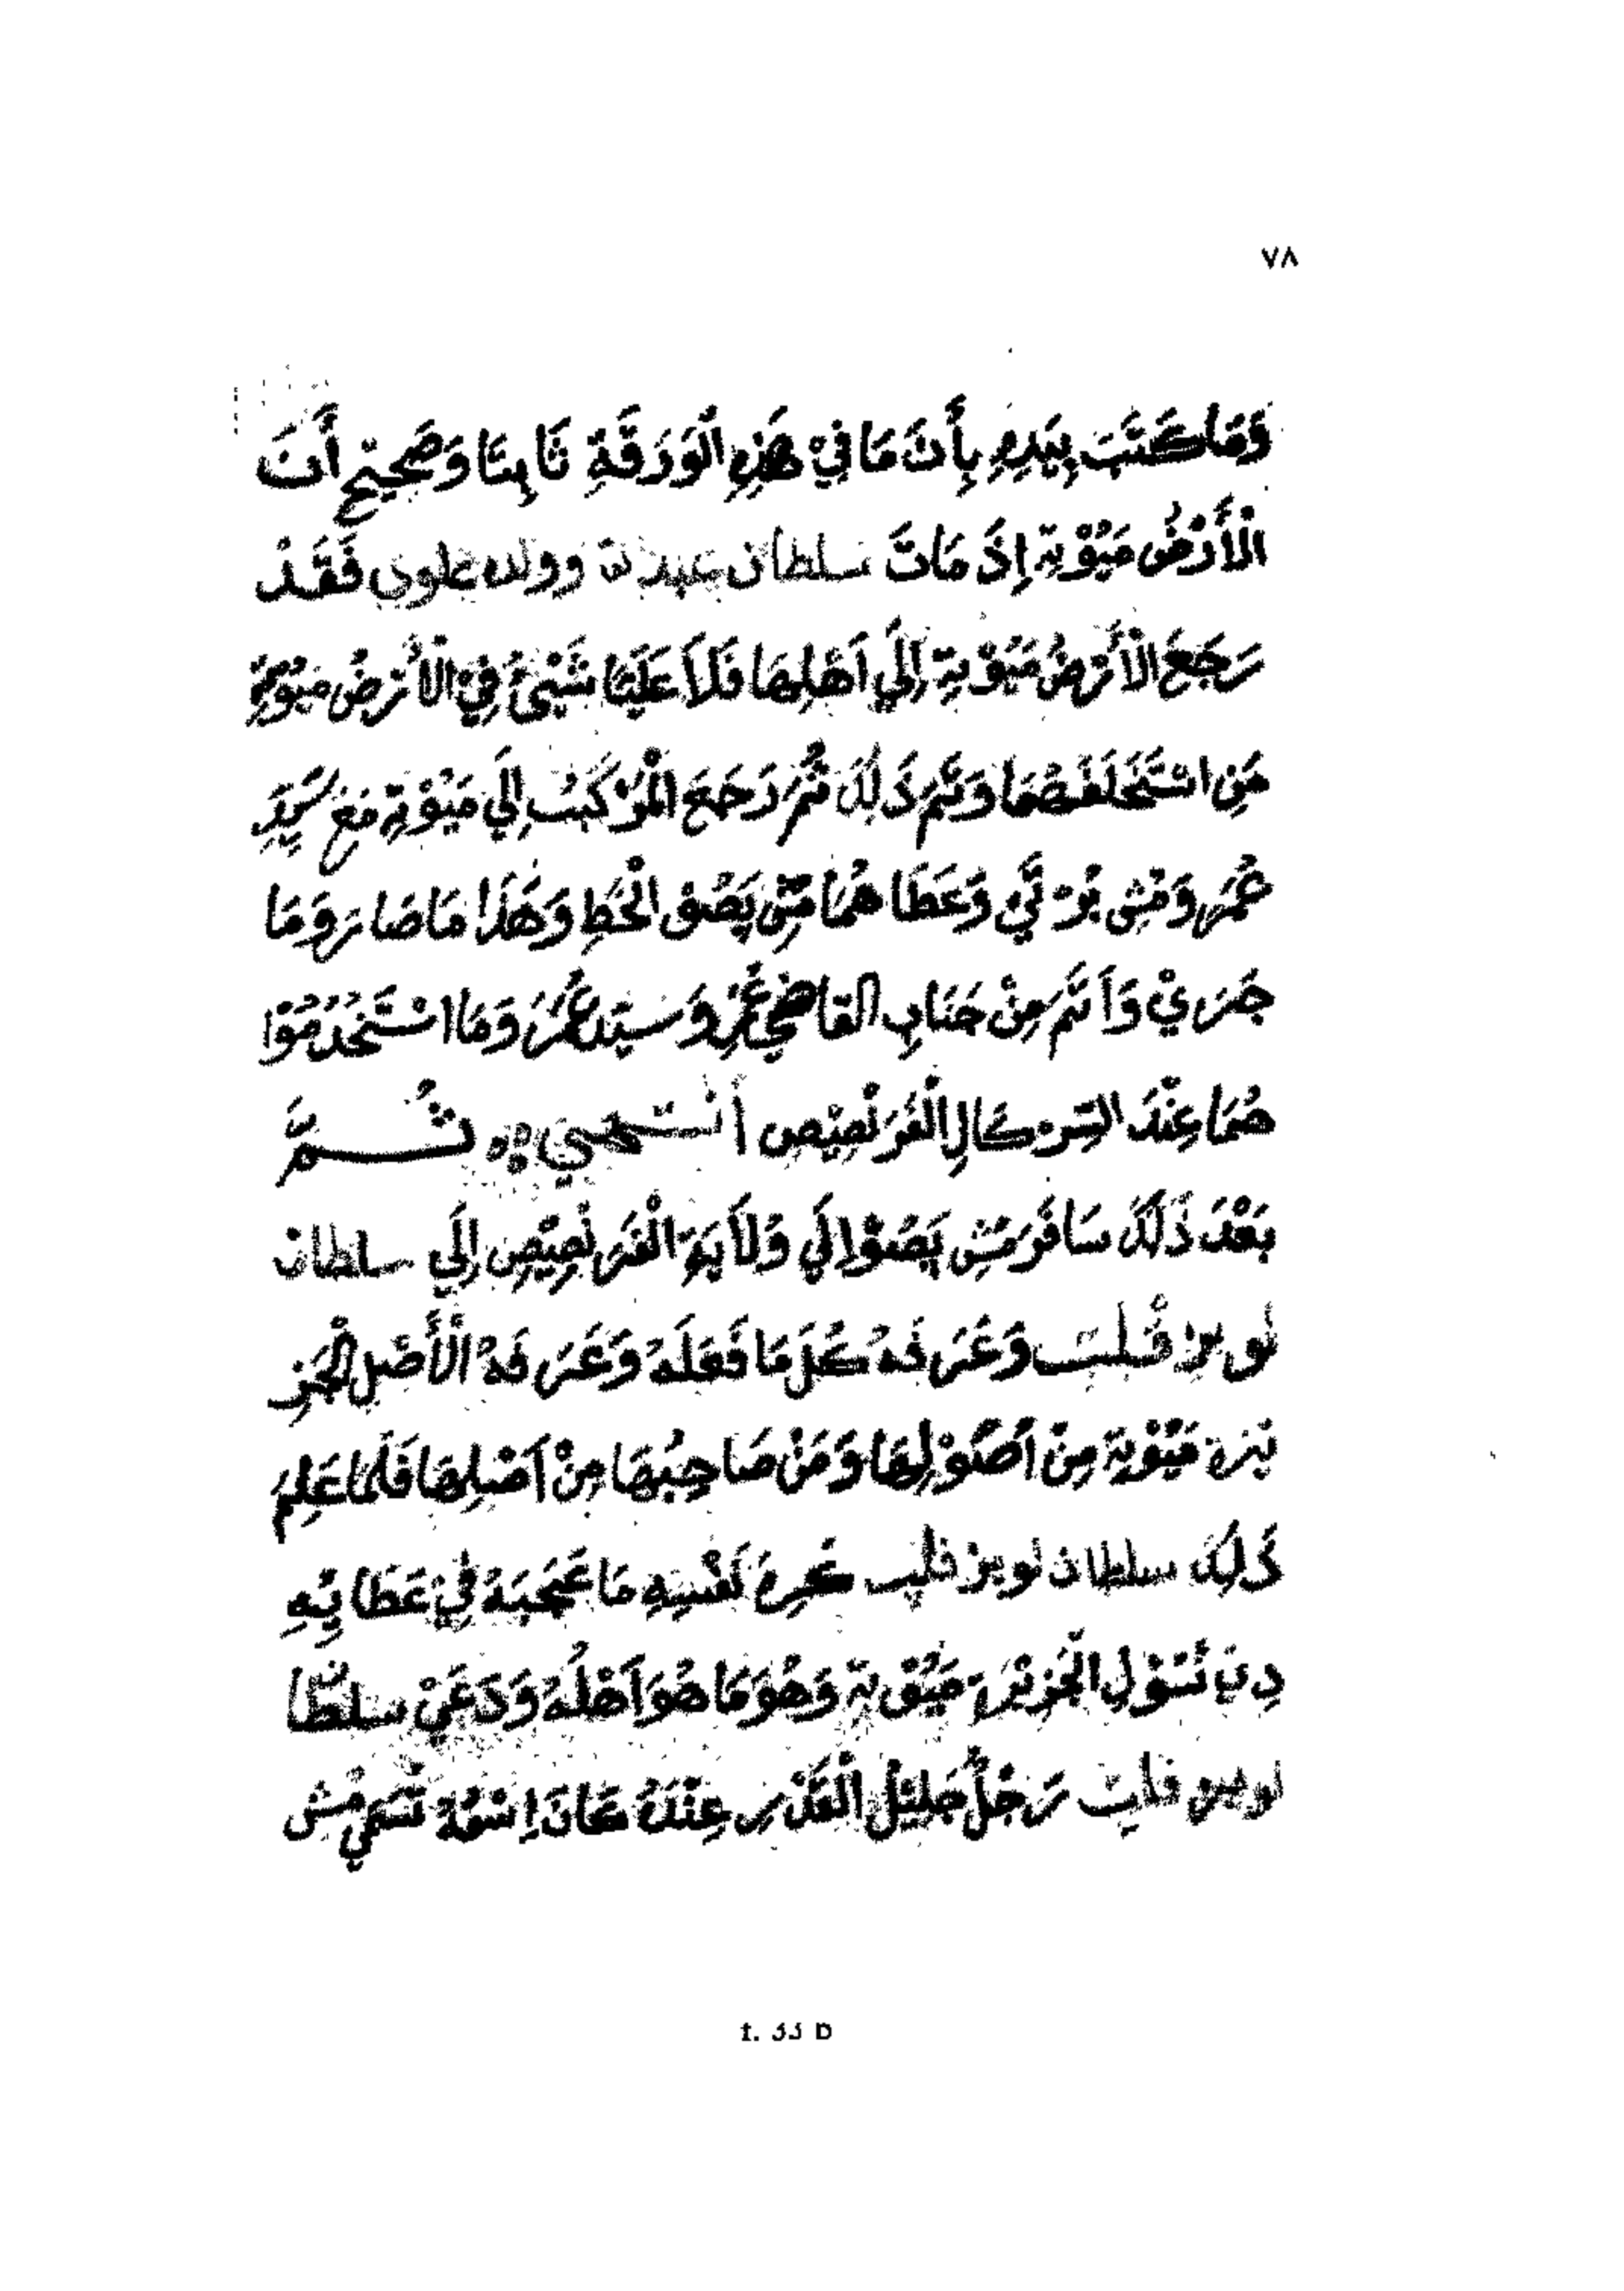 ٧٨
وَمَا كَتَبَ بِيَدِهِ بِأَنَ مَا فِيْ هَذِهِ الْوَرَقَةِ ثَابِتًا وَصَحِيْحٍ أَنَ
الْأَرْضُ مَيُوْتِة إِذَ مَاتَ سلطان وولده علوي فَقَدْ
رَجَعَ الْأَرْضُ مَيُوْتِة إِلَي اَهْلِهَا فَلَا عَلَيْنَا شَيْئُ فِيْ الْأَرْضُ مَيُوْتِة
مَنِ اسْتَخْلَفَهُمَا وَتَمَ ذَلِكَ ثُمَّ رَجَعَ الْمَرْكَبُ إِلَي مَيُوْتِة مَعَ سَيِّدِ
عُمَرَ وَمُسْ وَعَطَاهُمَا مُسْ پَصُوْ الْخَطِ وَهَذَا مَا صَارَ وَمَا
جَرَيْ وَاَتَمَ مِنْ جَنَابِ القاضي عُمَرِ وَسيدِ عُمَرُ وَمَا اسْتَخْدَمُوْا
هُمَا عِنْدَ السِرْكَالِ الْفَرَنْصِيْصِ أنتهي ثُمَّ
بَعْدَ ذَلَكَ سَافَرَ مُسْ پَصُوْ إِلَي وَلَايَةِ الْفَرَنْصِيْصِ إِلَي سلطان
لويز فلبت وَعَرَفَهُ كُلَ مَا فَعَلَهُ وَعَرَفَهُ الْأَصْلِ الْجَزِ
يرة مَيُوْتِة مِنْ اُصُوْلِهَا وَمَنْ صَاحِبُهَا مِنْ اَصْلِهَا فَلَمَا عَلِمَ
ذَلِكَ سلطان لويز فلپب نَفْسِهِ مَا عَجَبَهُ فِيْ عَطَايِهِ
الْجَزِيْرَةَ مَيُوْتِة وَهُوَ مَا هُوَ اَهْلُهُ وَدَعَيْ سلطان
لويز فلپت رَجُلٌ جَلِيْلُ الْقَدْرِ عِنْدَهُ كَانَ اِسْمُهُ تُسَمي مُسْ
f. 33 b